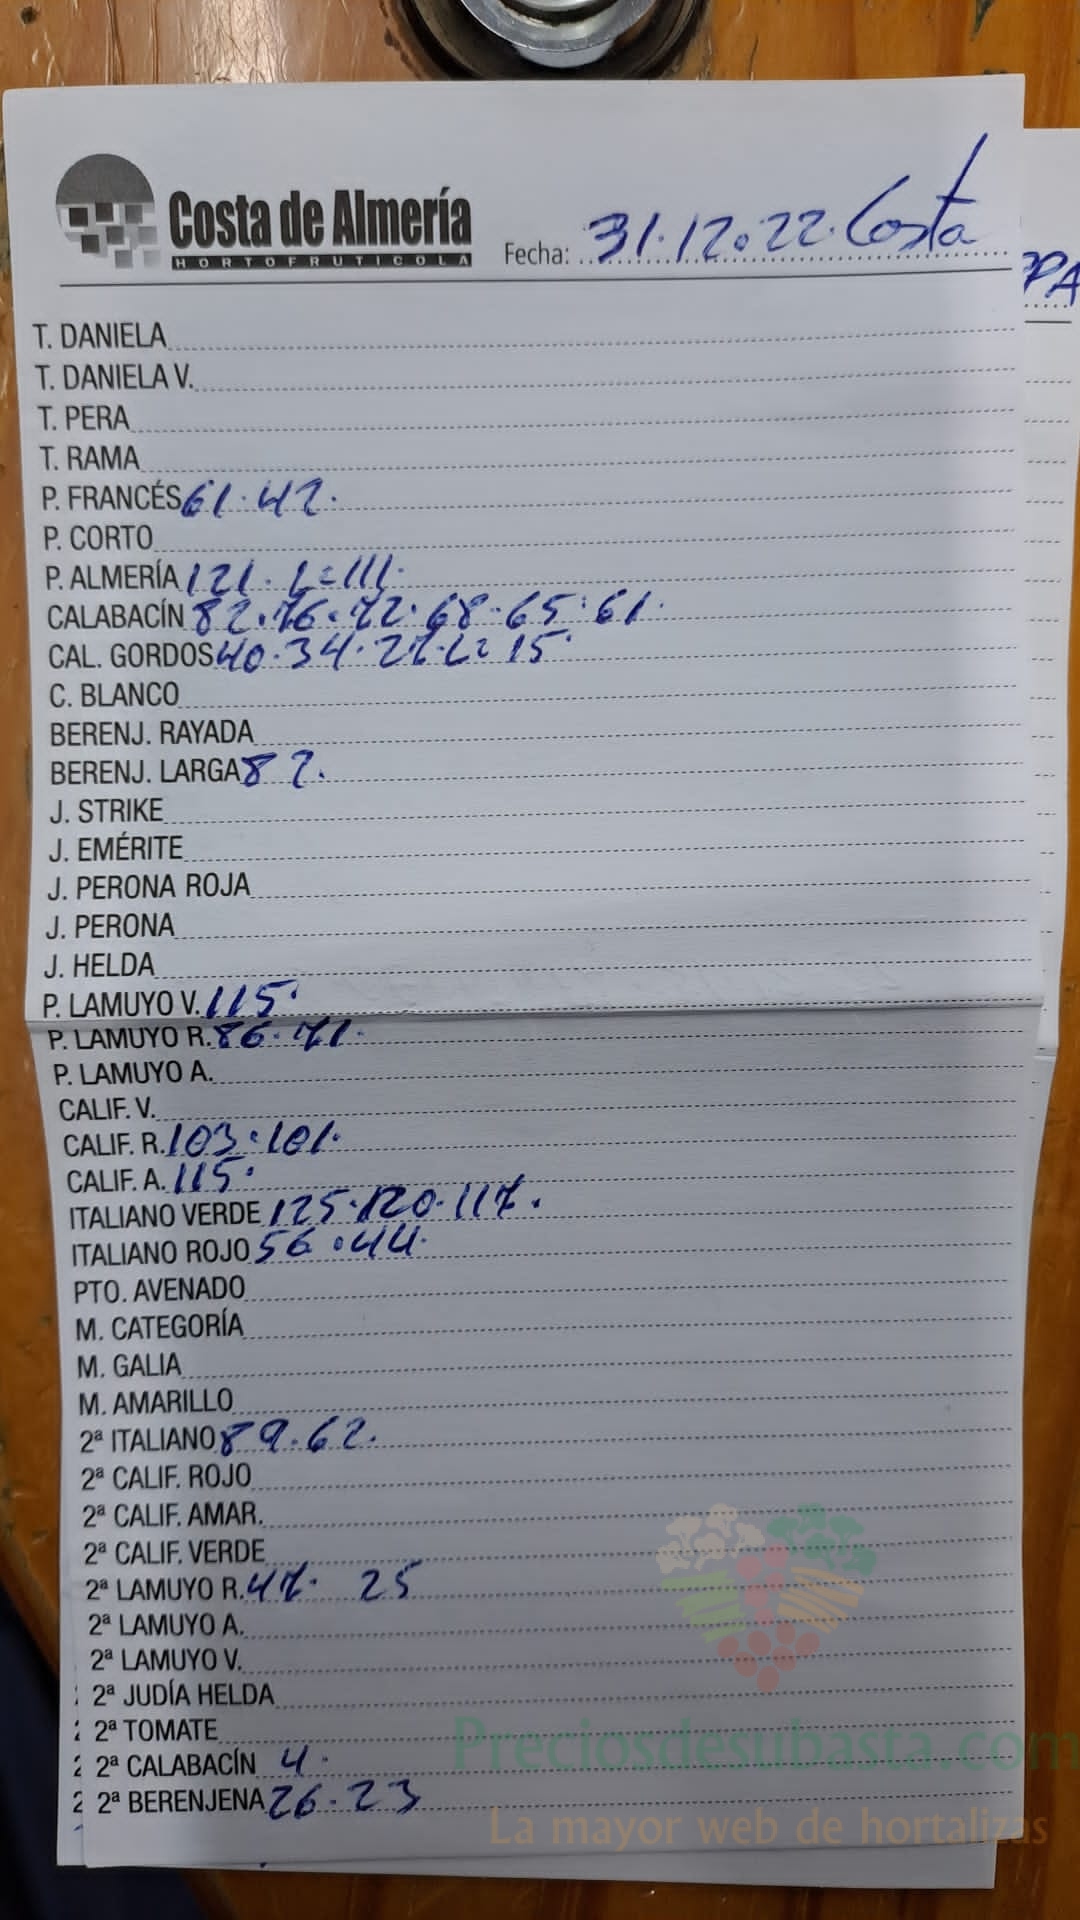 Costa de Almería
HORTOFRUTICOLA
Fecha: 31.12.22. Costa
PPA
T. DANIELA
T. DANIELA V.
T. PERA
T. RAMA
P. FRANCÉS 61.42.
P. CORTO
P. ALMERÍA 121. L=111.
CALABACÍN 82.76.72.68.65.61.
CAL. GORDOS 40.34.27.L=15
C. BLANCO
BERENJ. RAYADA
BERENJ. LARGA 82.
J. STRIKE
J. EMÉRITE
J. PERONA ROJA
J. PERONA
J. HELDA
P. LAMUYO V. 115.
P. LAMUYO R. 86.71.
P. LAMUYO A.
CALIF. V.
CALIF. R. 103.101.
CALIF. A. 115.
ITALIANO VERDE 125.120.117.
ITALIANO ROJO 56.44.
PTO. AVENADO
M. CATEGORÍA
M. GALIA
M. AMARILLO
2ª ITALIANO 89.62.
2ª CALIF. ROJO
2ª CALIF. AMAR.
2ª CALIF. VERDE
2ª LAMUYO R. 47. 25
2ª LAMUYO A.
2ª LAMUYO V.
2ª JUDÍA HELDA
2ª TOMATE
2ª CALABACÍN 4.
2ª BERENJENA 26.23
Preciosdesubasta.com
La mayor web de hortalizas